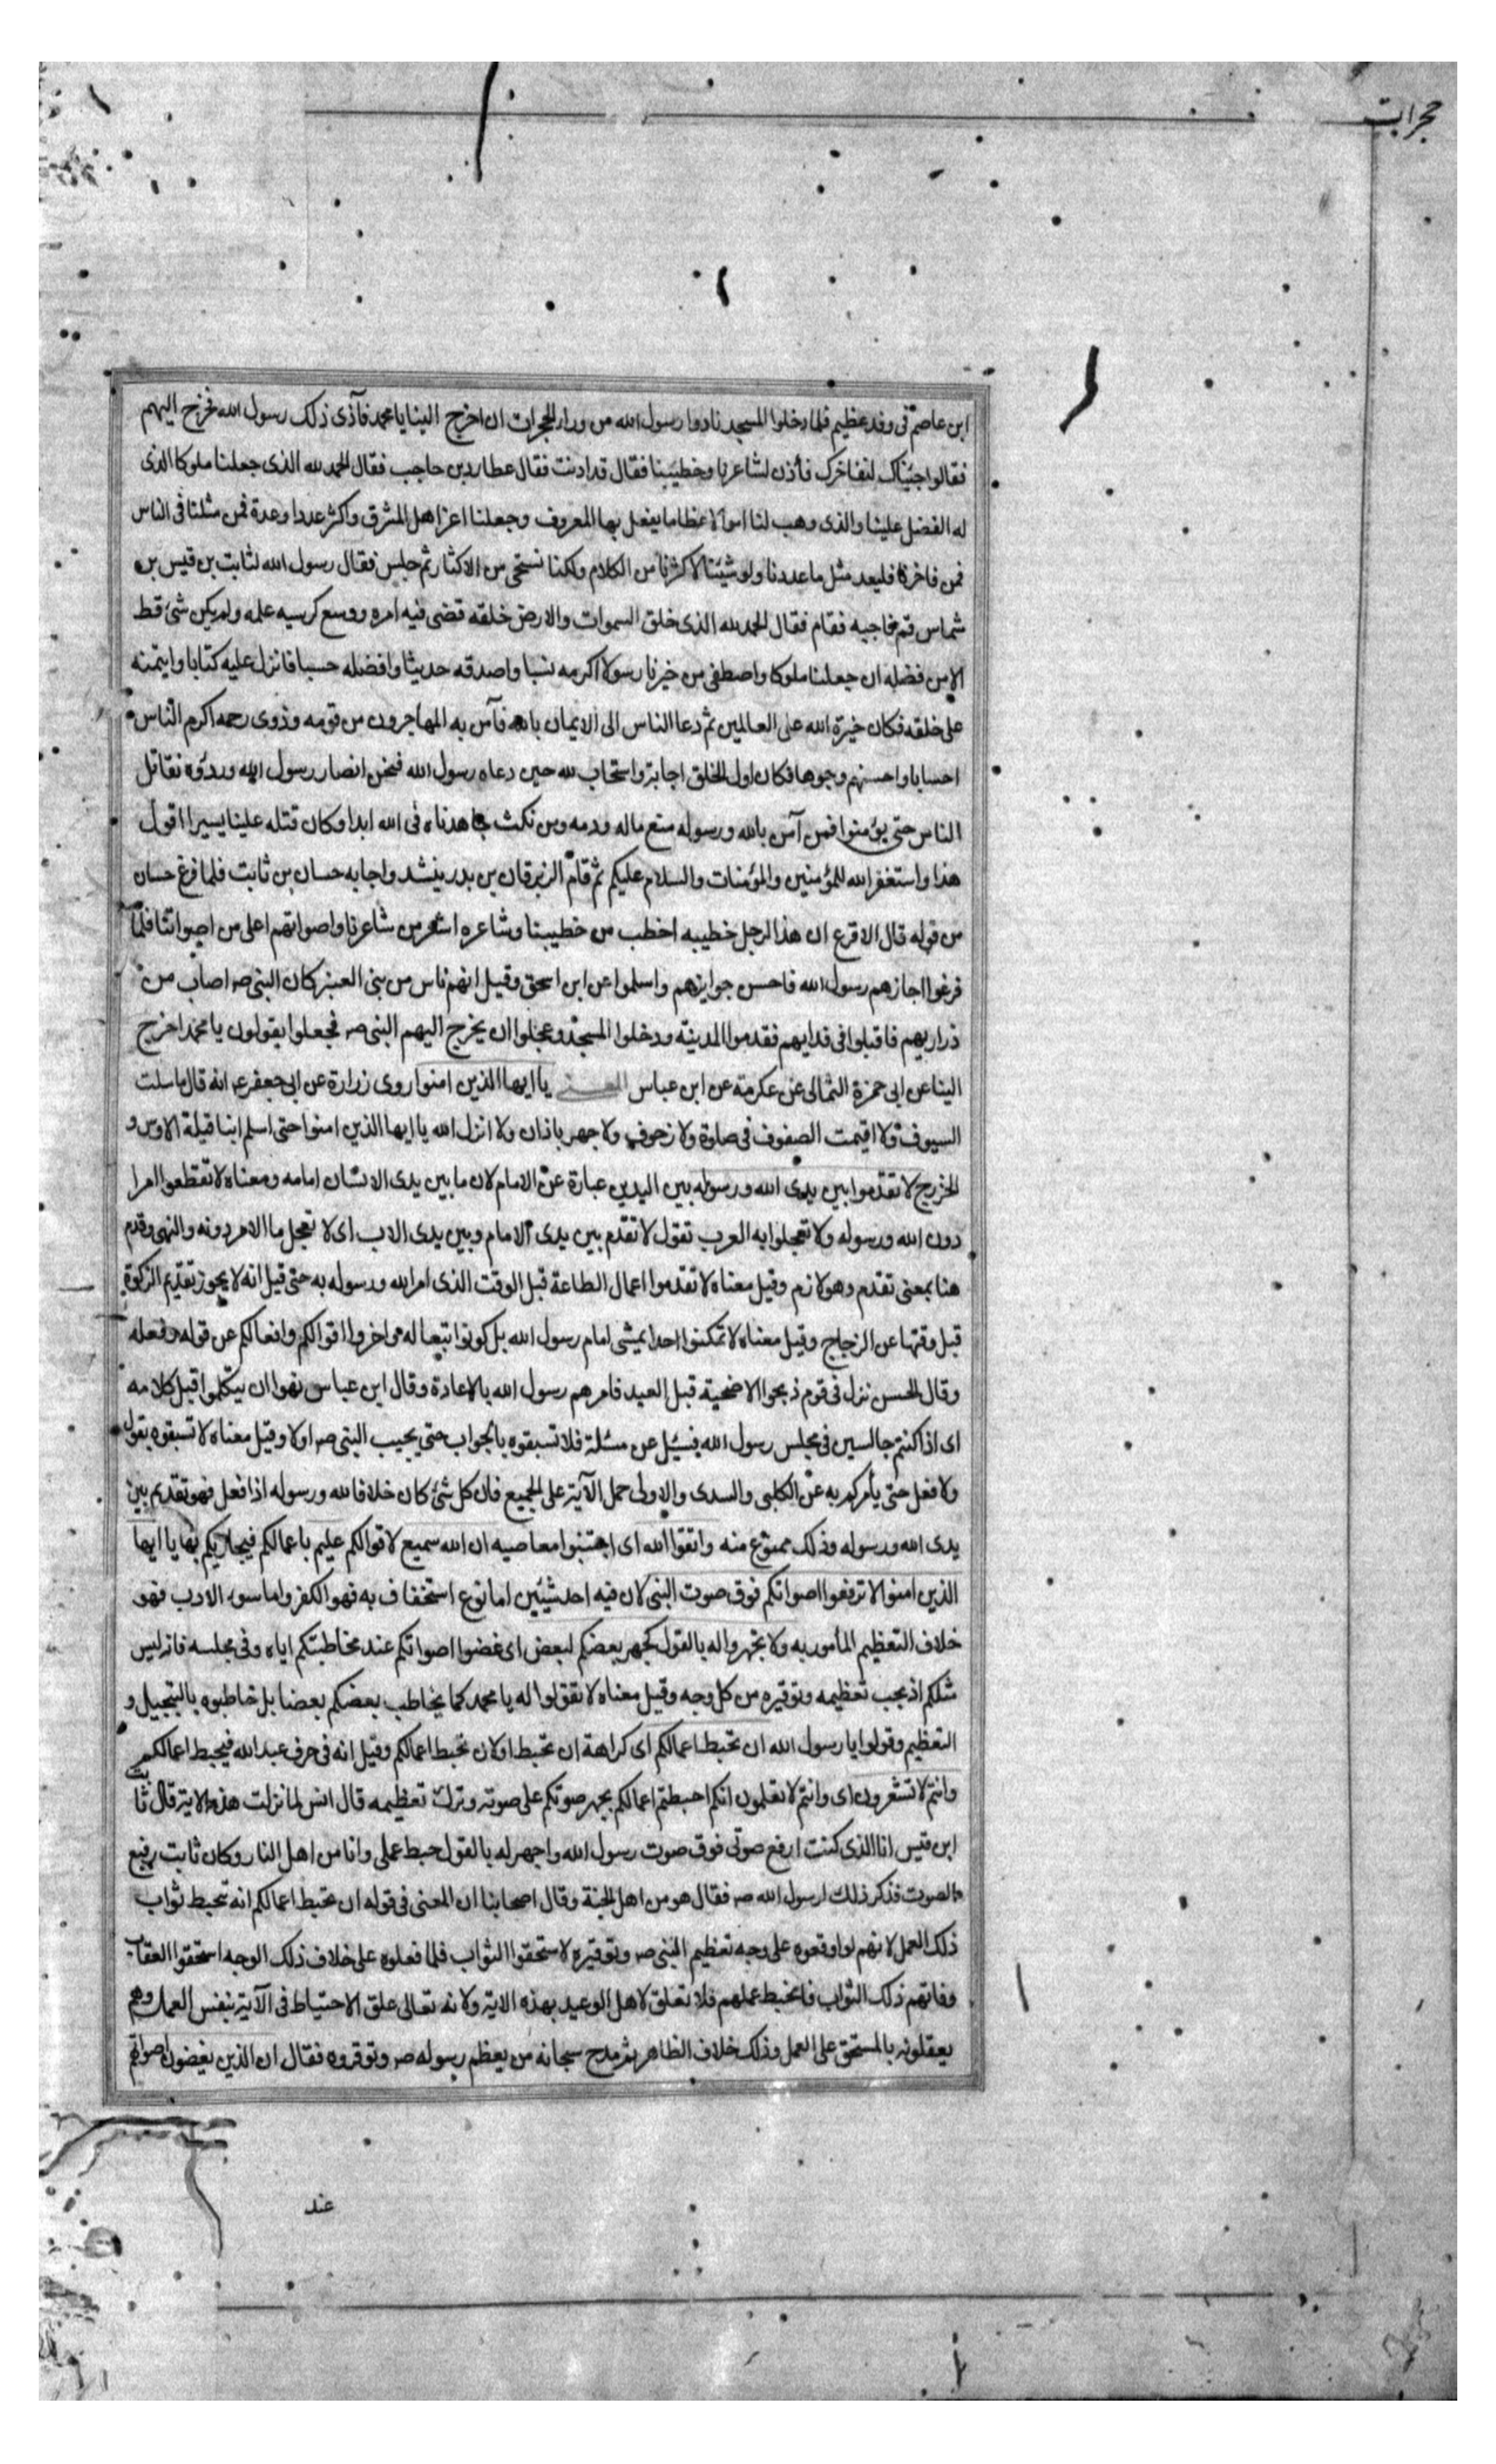 حجرات
ابن عاصم فى وفد عظيم فلما دخلوا المسجد نادوا رسول الله من وراء الحجرات ان اخرج الينا يا محمد فآذى ذلك رسول الله فخرج اليهم
فقالوا جئناك لنفاخرك فأذن لشاعرنا وخطيبنا فقال قد اذنت فقال عطارد بن حاجب فقال الحمد لله الذى جعلنا ملوكا الذى
له الفضل علينا والذى وهب لنا اموالا عظاما يفعل بها المعروف وجعلنا اعز اهل المشرق واكثر عددا وعدة فمن مثلنا فى الناس
فمن فاخرنا فليعد مثل ما عددنا ولو شيئنا لاكثرنا من الكلام ولكنا نستحى من الاكثار ثم جلس فقال رسول الله لثابت بن قيس بن
شماس قم فاجبه فقام فقال الحمد لله الذى خلق السموات والارض خلقه قضى فيه امره ووسع كرسيه علمه ولم يكن شئ قط
الا من فضله ان جعلنا ملوكا واصطفى من خيرنا رسولا اكرمه نسبا واصدقه حديثا وافضله حسبا فانزل عليه كتابا وايتمنه
على خلقه فكان خيرة الله على العالمين ثم دعا الناس الى الايمان بالله فآمن به المهاجرون من قومه وذوى رحمه اكرم الناس
احسابا واحسنهم وجوها فكان اول الخلق اجابة واستجاب لله حين دعاه رسول الله فنحن انصار رسول الله وردؤه نقاتل
الناس حتى يؤمنوا فمن آمن بالله ورسوله منع ماله ودمه ومن نكث جاهدناه فى الله ابدا وكان قتله علينا يسيرا اقول
هذا واستغفر الله للمؤمنين والمؤمنات والسلام عليكم ثم قام الزبرقان بن بدر ينشد واجابه حسان بن ثابت فلما فرغ حسان
من قوله قال الاقرع ان هذا الرجل خطيبه اخطب من خطيبنا وشاعره اشعر من شاعرنا واصواتهم اعلى من اصواتنا فلما
فرغوا اجازهم رسول الله فاحسن جوايزهم واسلموا عن ابن اسحق وقيل انهم ناس من بنى العنبر كان النبى صه اصاب من
ذراريهم فاقبلوا فى فدايهم فقدموا المدينة ودخلوا المسجد وعجلوا ان يخرج اليهم النبى صه فجعلوا يقولون يا محمد اخرج
الينا عن ابى حمزة الثمالى عن عكرمة عن ابن عباس المعنى يا ايها الذين امنوا روى زرارة عن ابى جعفر عه انه قال ما سلت
السيوف ولا اقيمت الصفوف فى صلوة ولا زحوف ولا جهر باذان ولا انزل الله يا ايها الذين امنوا حتى اسلم ابنا قيلة الاوس و
الخزرج لا تقدموا بين يدى الله ورسوله بين اليدين عبارة عن الامام لان ما بين يدى الانسان امامه ومعناه لا تقطعوا امرا
دون الله ورسوله ولا تعجلوا به العرب تقول لا تقدم بين يدى الامام وبين يدى الاب اى لا تعجل ما الامر دونه والنهى وقدم
هنا بمعنى تقدم وهو لازم وقيل معناه لا تقدموا اعمال الطاعة قبل الوقت الذى امر الله ورسوله به حتى قيل انه لا يجوز تقديم الزكوة
قبل وقتها عن الزجاج وقيل معناه لا تمكنوا احدا يمشى امام رسول الله بل كونوا تبعا له واخروا اقوالكم وافعالكم عن قوله وفعله
وقال الحسن نزل فى قوم ذبحوا الاضحية قبل العيد فامرهم رسول الله بالاعادة وقال ابن عباس نهوا ان يتكلموا قبل كلامه
اى اذا كنتم جالسين فى مجلس رسول الله فسئل عن مسئلة فلا تسبقوه بالجواب حتى يجيب النبى صه اولا وقيل معناه لا تسبقوه بقول
ولا فعل حتى يأمركم به عن الكلبى والسدى والاولى حمل الآية على الجميع فان كل شئ كان خلافا لله ورسوله اذا فعل فهو تقديم بين
يدى الله ورسوله وذلك ممنوع منه واتقوا الله اى اجتنبوا معاصيه ان الله سميع لاقوالكم عليم باعمالكم فيجازيكم بها يا ايها
الذين امنوا لا ترفعوا اصواتكم فوق صوت النبى لان فيه احد شيئين اما نوع استخفاف به فهو الكفر واما سوء الادب فهو
خلاف التعظيم المأمور به ولا تجهروا له بالقول كجهر بعضكم لبعض اى غضوا اصواتكم عند مخاطبتكم اياه وفى مجلسه فانه ليس
مثلكم اذ يجب تعظيمه وتوقيره من كل وجه وقيل معناه لا تقولوا له يا محمد كما يخاطب بعضكم بعضا بل خاطبوه بالتبجيل و
التعظيم وقولوا يا رسول الله ان تحبط اعمالكم اى كراهة ان تحبط او لان تحبط اعمالكم وقيل انه فى حرف عبد الله فيحبط اعمالكم
وانتم لا تشعرون اى وانتم لا تعلمون انكم احبطتم اعمالكم بجهر صوتكم على صوته وترك تعظيمه قال انس لما نزلت هذه الاية قال ثابت
ابن قيس انا الذى كنت ارفع صوتى فوق صوت رسول الله واجهر له بالقول حبط عملى وانا من اهل النار وكان ثابت رفيع
الصوت فذكر ذلك لرسول الله صه فقال هو من اهل الجنة وقال اصحابنا ان المعنى فى قوله ان تحبط اعمالكم انه تحبط ثواب
ذلك العمل لانهم لو اوقعوه على وجه تعظيم النبى صه وتوقيره لاستحقوا الثواب فلما فعلوه على خلاف ذلك الوجه استحقوا العقاب
وفاتهم ذلك الثواب فانحبط عملهم فلا تعلق لاهل الوعيد بهذه الاية ولانه تعالى علق الاحتياط فى الآية بنفس العمل وهم
يعقلونه بالمستحق على العمل وذلك خلاف الظاهر ثم مدح سبحانه من يعظم رسوله صه وتوقروه فقال ان الذين يغضون اصواتهم
عند